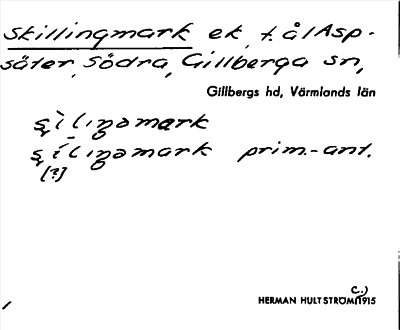 Skillingmark ek, t. ål Asp-
säter, Södra, Gillberga sn,
Gillbergs hd, Värmlands län
prim.-ant.
[?]
C.)
HERMAN HULTSTRÖM 1915